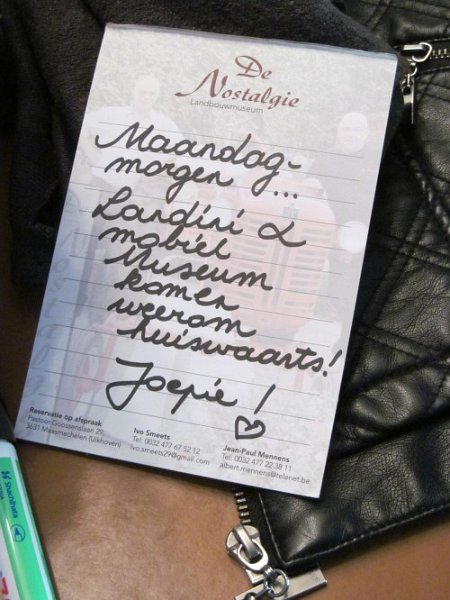 De
Nostalgie
Landbouwmuseum
Maandag-
morgen ...
Landini &
mobiel
Museum
komen
weerom
huiswaarts!
Joepie!
Reservatie op afspraak
Pastoor Goossenslaan 29,
3631 Maasmechelen (Uikhoven)
Ivo Smeets
Tel. 0032 477 67 52 12
ivo.smeets29@gmail.com
Jean-Paul Mennens
Tel. 0032 477 22 38 11
albert.mennens@telenet.be